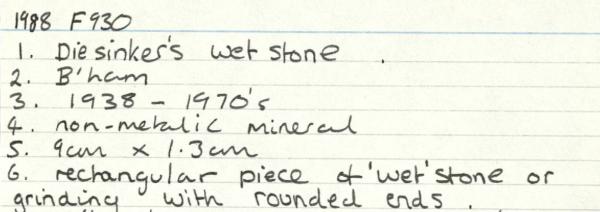 1988 F930
1. Diesinker's wet stone .
2. B'ham
3. 1938 - 1970's
4. non-metalic mineral
5. 9cm x 1.3cm
6. rectangular piece of 'wet' stone or
grinding with rounded ends .